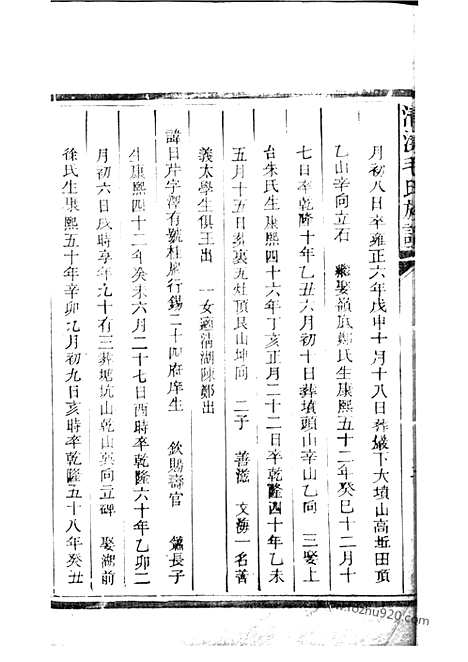 清漾毛氏族譜
月初八日卒雍正六年戊申十月十八日葬嚴下大墳山高坵田頂
乙山辛向立石 繼娶嶺底鄭氏生康熙五十二年癸巳十二月十
七日卒乾隆十年乙丑六月初十日葬墳頭山辛山乙向 三娶上
台朱氏生康熙四十六年丁亥正月二十二日卒乾隆四十年乙未
五月十五日葬裏九灶頂艮山坤向 二子 善滋 文海一名善
義太學生俱王出 一女適清湖陳鄭出
諱日芹字澤有號桂 行錫二十四府庠生 欽賜壽官 長子
生康熙四十二年癸未六月二十七日酉時卒乾隆六十年乙卯二
月初六日戌時享年九十有三葬塘坑山乾山巽向立碑 娶湖前
徐氏生康熙五十年辛卯九月初九日亥時卒乾隆五十八年癸丑
www.fozhu920.com